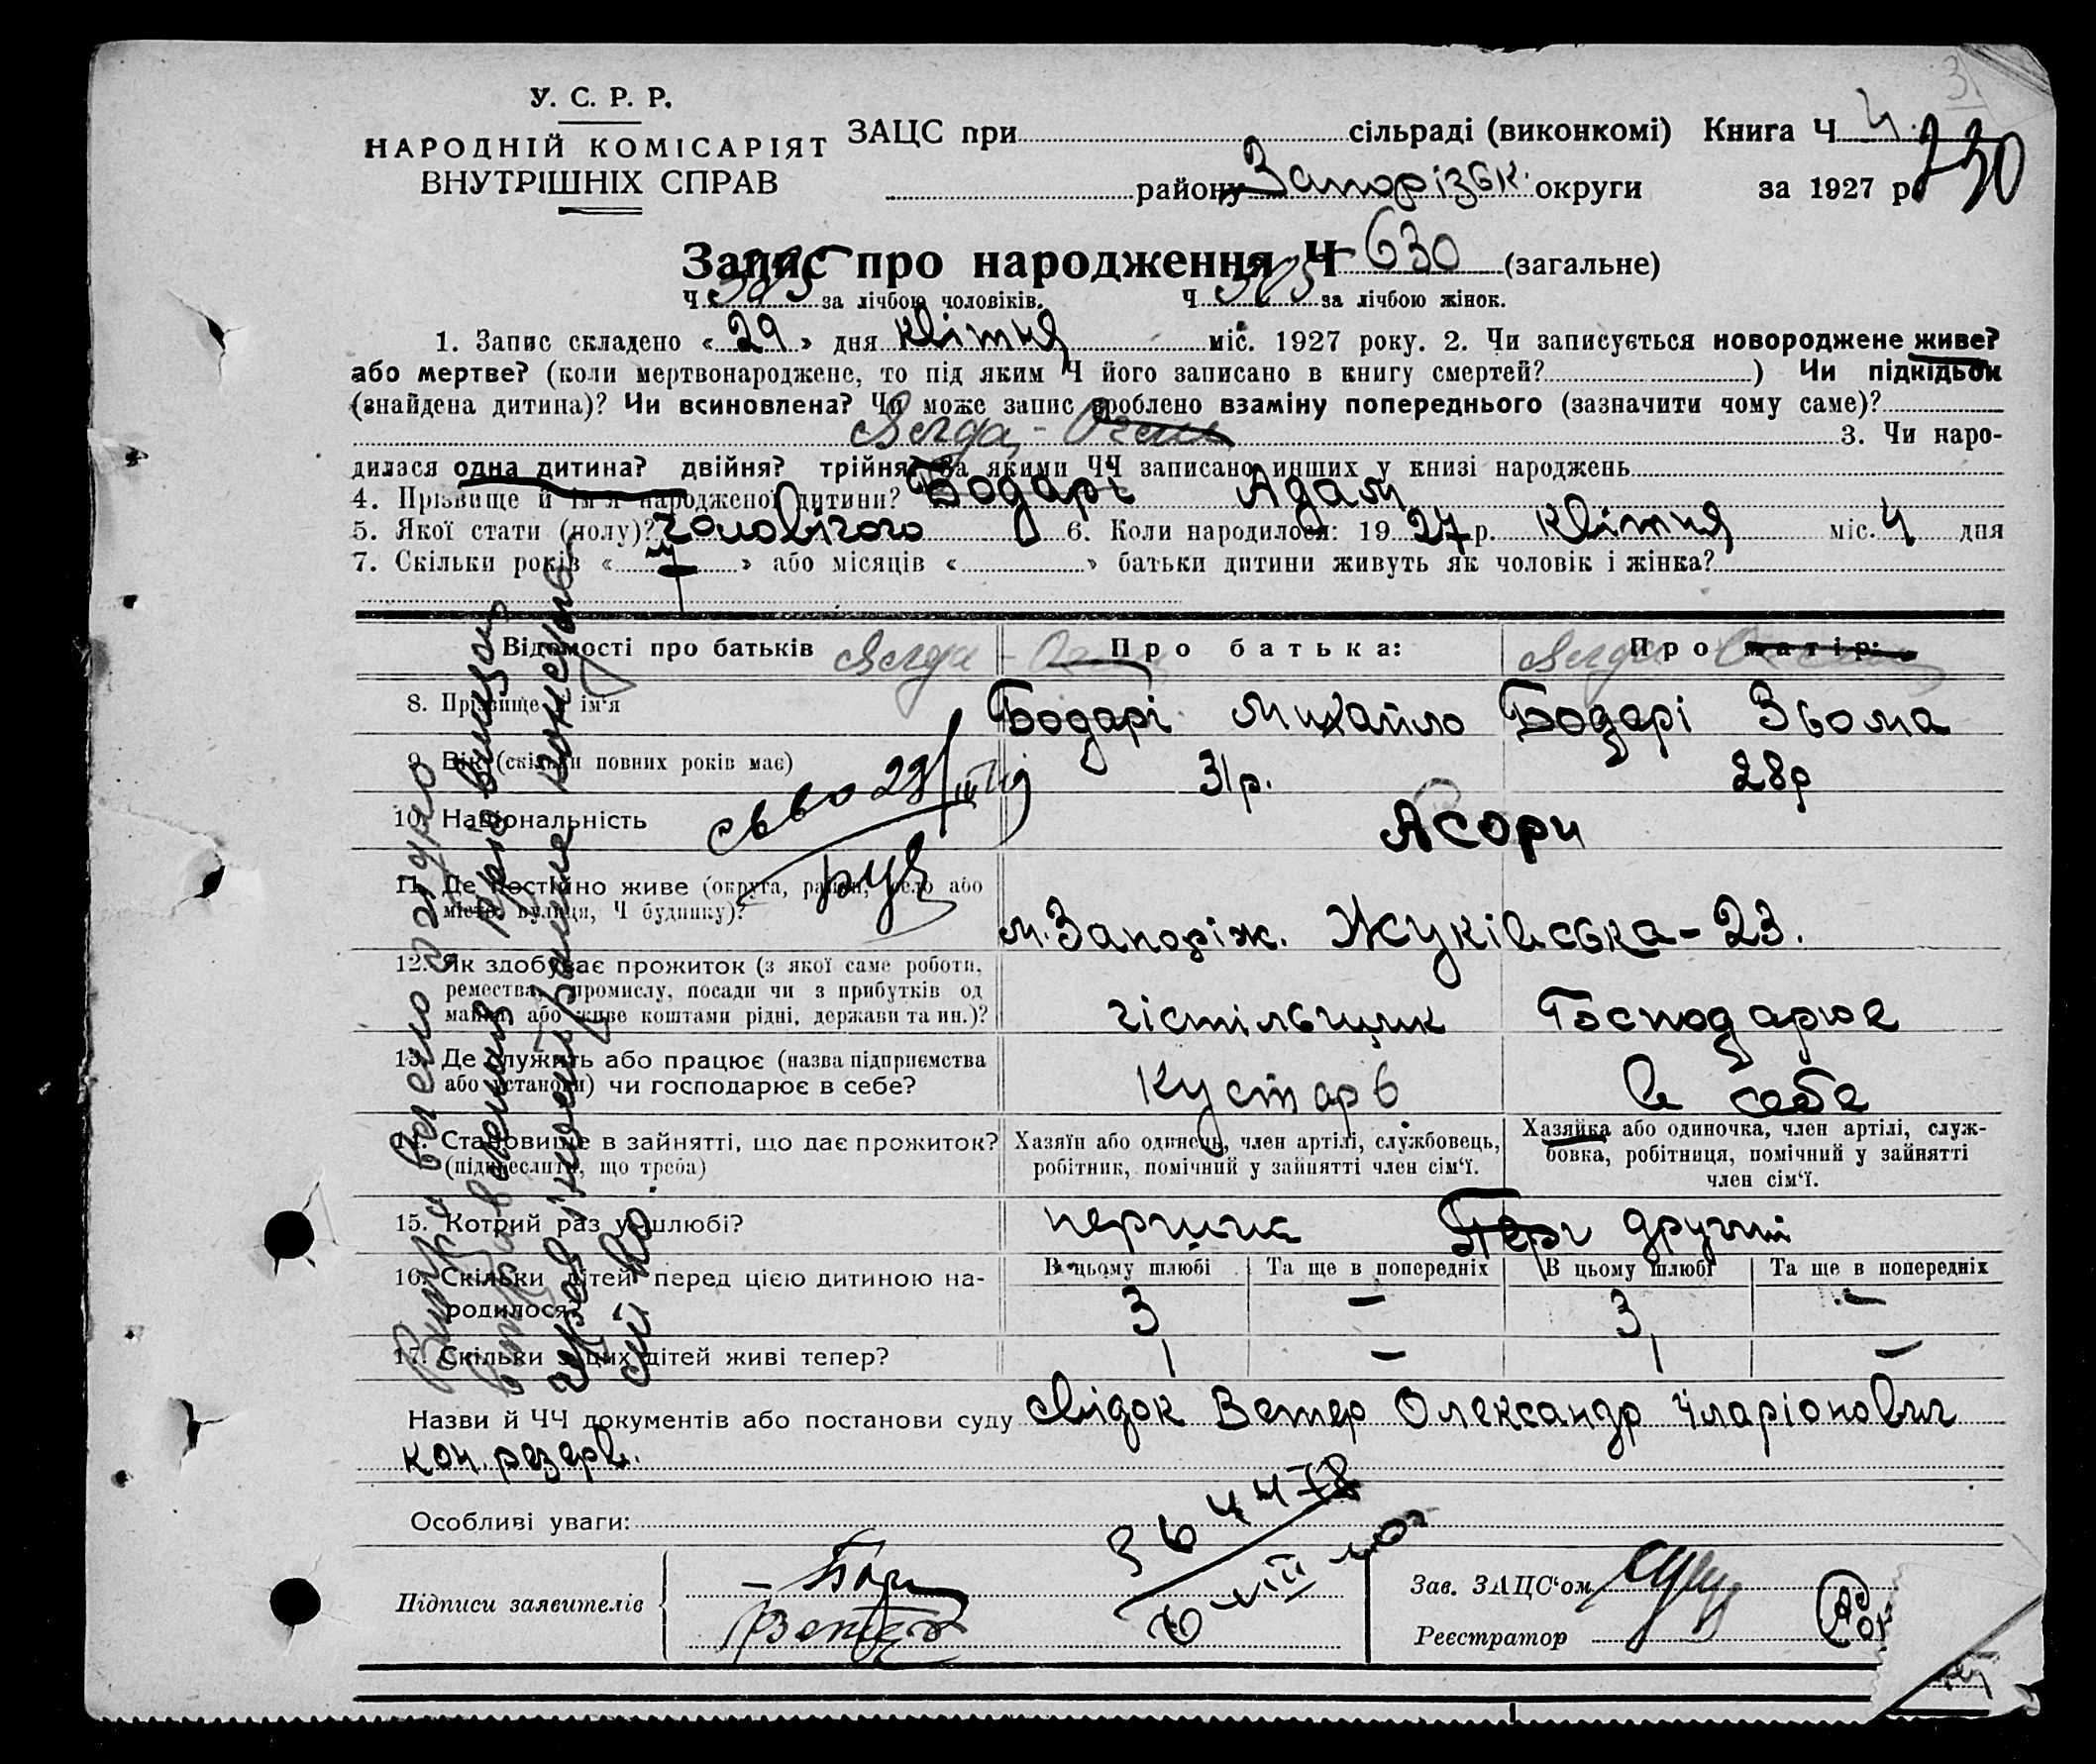 У. С. Р. Р.
НАРОДНІЙ КОМІСАРІЯТ
ВНУТРІШНІХ СПРАВ
ЗАЦС при сільраді (виконкомі) Книга Ч 4. 230
району Запорізьк. округи за 1927 р.
Запис про народження Ч 630 (загальне)
Ч за лічбою чоловіків. Ч за лічбою жінок.
1. Запис складено «29» дня квітня міс. 1927 року. 2. Чи записується новороджене живе?
або мертве? (коли мертвонароджене, то під яким Ч його записано в книгу смертей? ) Чи підкідьок
(знайдена дитина)? Чи всиновлена? Чи може запис зроблено взаміну попереднього (зазначити чому саме)?
3. Чи наро-
дилася одна дитина? двійня? трійня? За якими ЧЧ записано инших у книзі народжень
4. Прізвище й ім'я народженої дитини? Бодарі Адам
5. Якої стати (полу)? чоловічого 6. Коли народилося: 1927 р. квітня міс. 4 дня
7. Скільки років «7» або місяців « » батьки дитини живуть як чоловік і жінка?
Відомості про батьків Про батька: Про матір:
8. Прізвище й ім'я Бодарі Михайло Бодарі Зьома
9. Вік (скільки повних років має) 31р. 28р
10. Національність Асори
11. Де постійно живе (округа, район, село або
місто, вулиця, Ч будинку)? м. Запоріж. Жуківська-23.
12. Як здобуває прожиток (з якої саме роботи,
ремества, промислу, посади чи з прибутків од
майна, або живе коштами рідні, держави та ин.)? чістільщик Господарює
13. Де служить або працює (назва підприємства
або установи) чи господарює в себе? Кустарь в себе
14. Становище в зайнятті, що дає прожиток?
(підкреслити, що треба)
Хазяїн або одинець, член артілі, службовець,
робітник, помічний у зайнятті член сім'ї.
Хазяйка або одиночка, член артілі, служ-
бовка, робітниця, помічний у зайнятті
член сім'ї.
15. Котрий раз у шлюбі? перший другий
16. Скільки дітей перед цією дитиною на-
родилося?
В цьому шлюбі Та ще в попередніх В цьому шлюбі Та ще в попередніх
3 – 3 –
17. Скільки з цих дітей живі тепер? 1 – 1 –
Назви й ЧЧ документів або постанови суду свідок Ветер Олександр Іларіонович
кон. резерв.
Особливі уваги:
Підписи заявителів
Зав. ЗАЦС'ом
Реєстратор